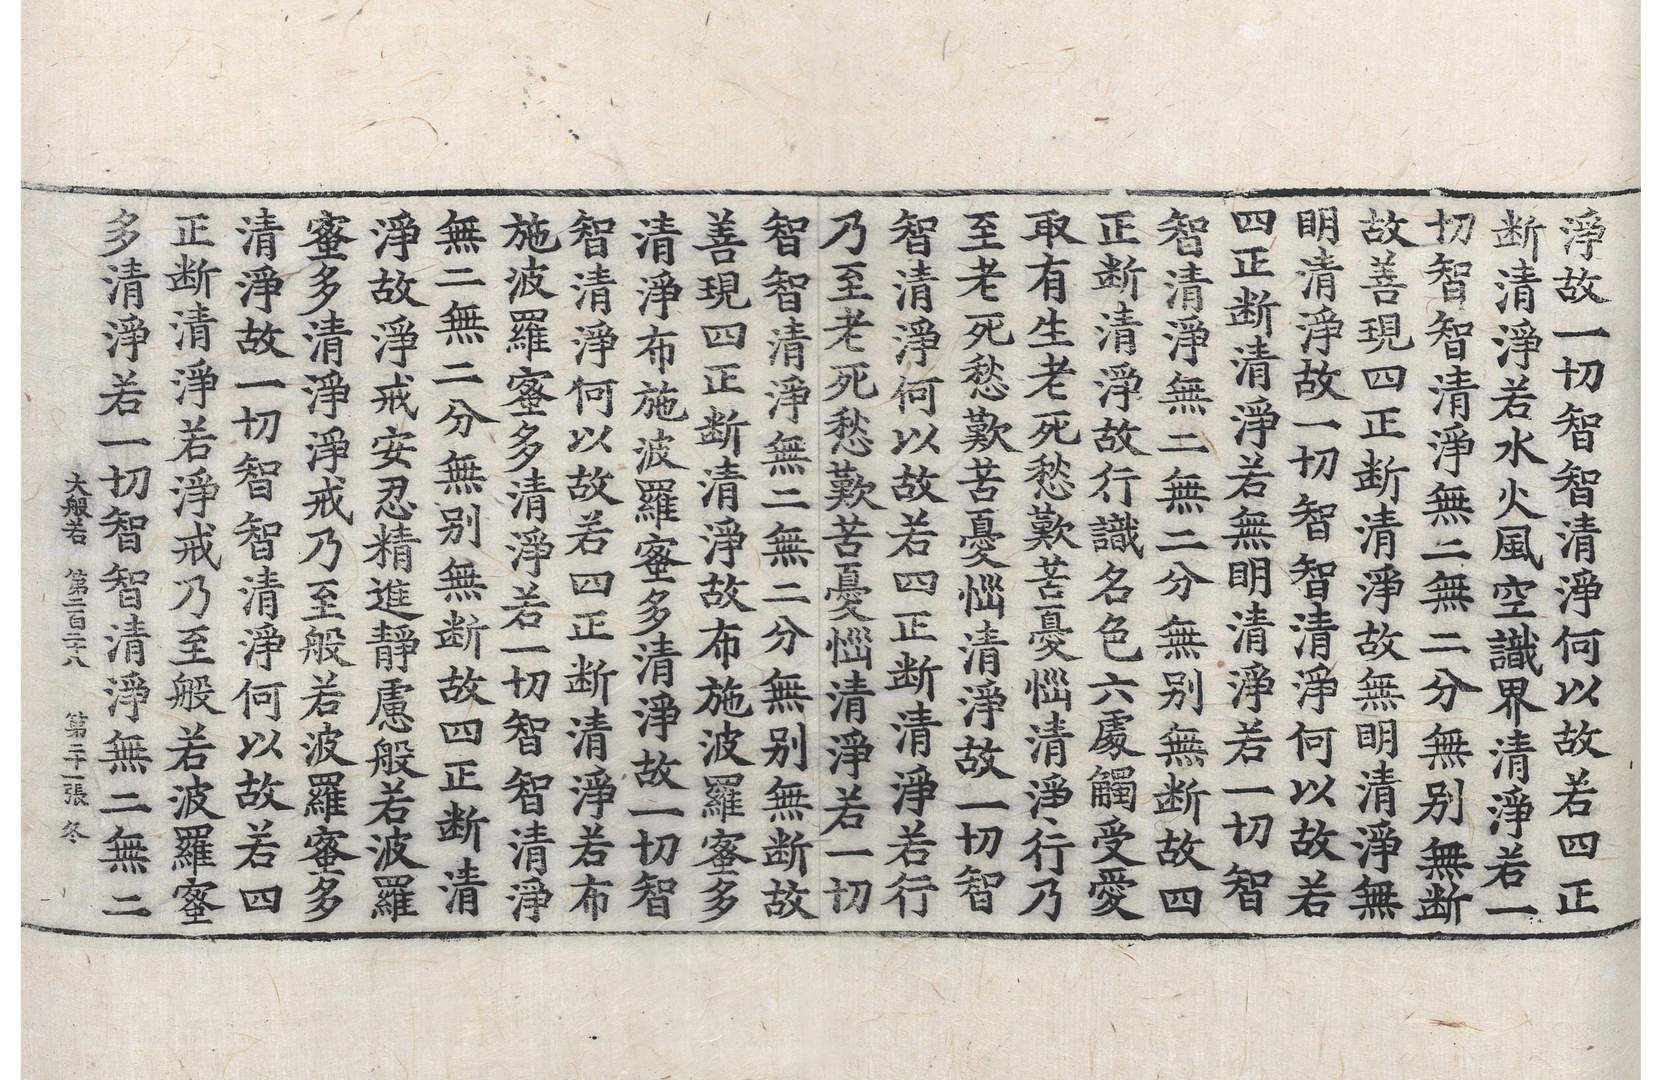 淨故一切智智清淨何以故若四正
断清淨若水火風空識界清淨若一
切智智清淨無二無二分無别無断
故善現四正断清淨故無明清淨無
明清淨故一切智智清淨何以故若
四正断清淨若無明清淨若一切智
智清淨無二無二分無别無断故四
正断清淨故行識名色六處觸受愛
取有生老死愁歎苦憂惱清淨行乃
至老死愁歎苦憂惱清淨故一切智
智清淨何以故若四正断清淨若行
乃至老死愁歎苦憂惱清淨若一切
智智清淨無二無二分無别無断故
善現四正断清淨故布施波羅蜜多
清淨布施波羅蜜多清淨故一切智
智清淨何以故若四正断清淨若布
施波羅蜜多清淨若一切智智清淨
無二無二分無别無断故四正断清
淨故淨戒安忍精進靜慮般若波羅
蜜多清淨淨戒乃至般若波羅蜜多
清淨故一切智智清淨何以故若四
正断清淨若淨戒乃至般若波羅蜜
多清淨若一切智智清淨無二無二
大般若 第二百二十八 第二十一張 冬